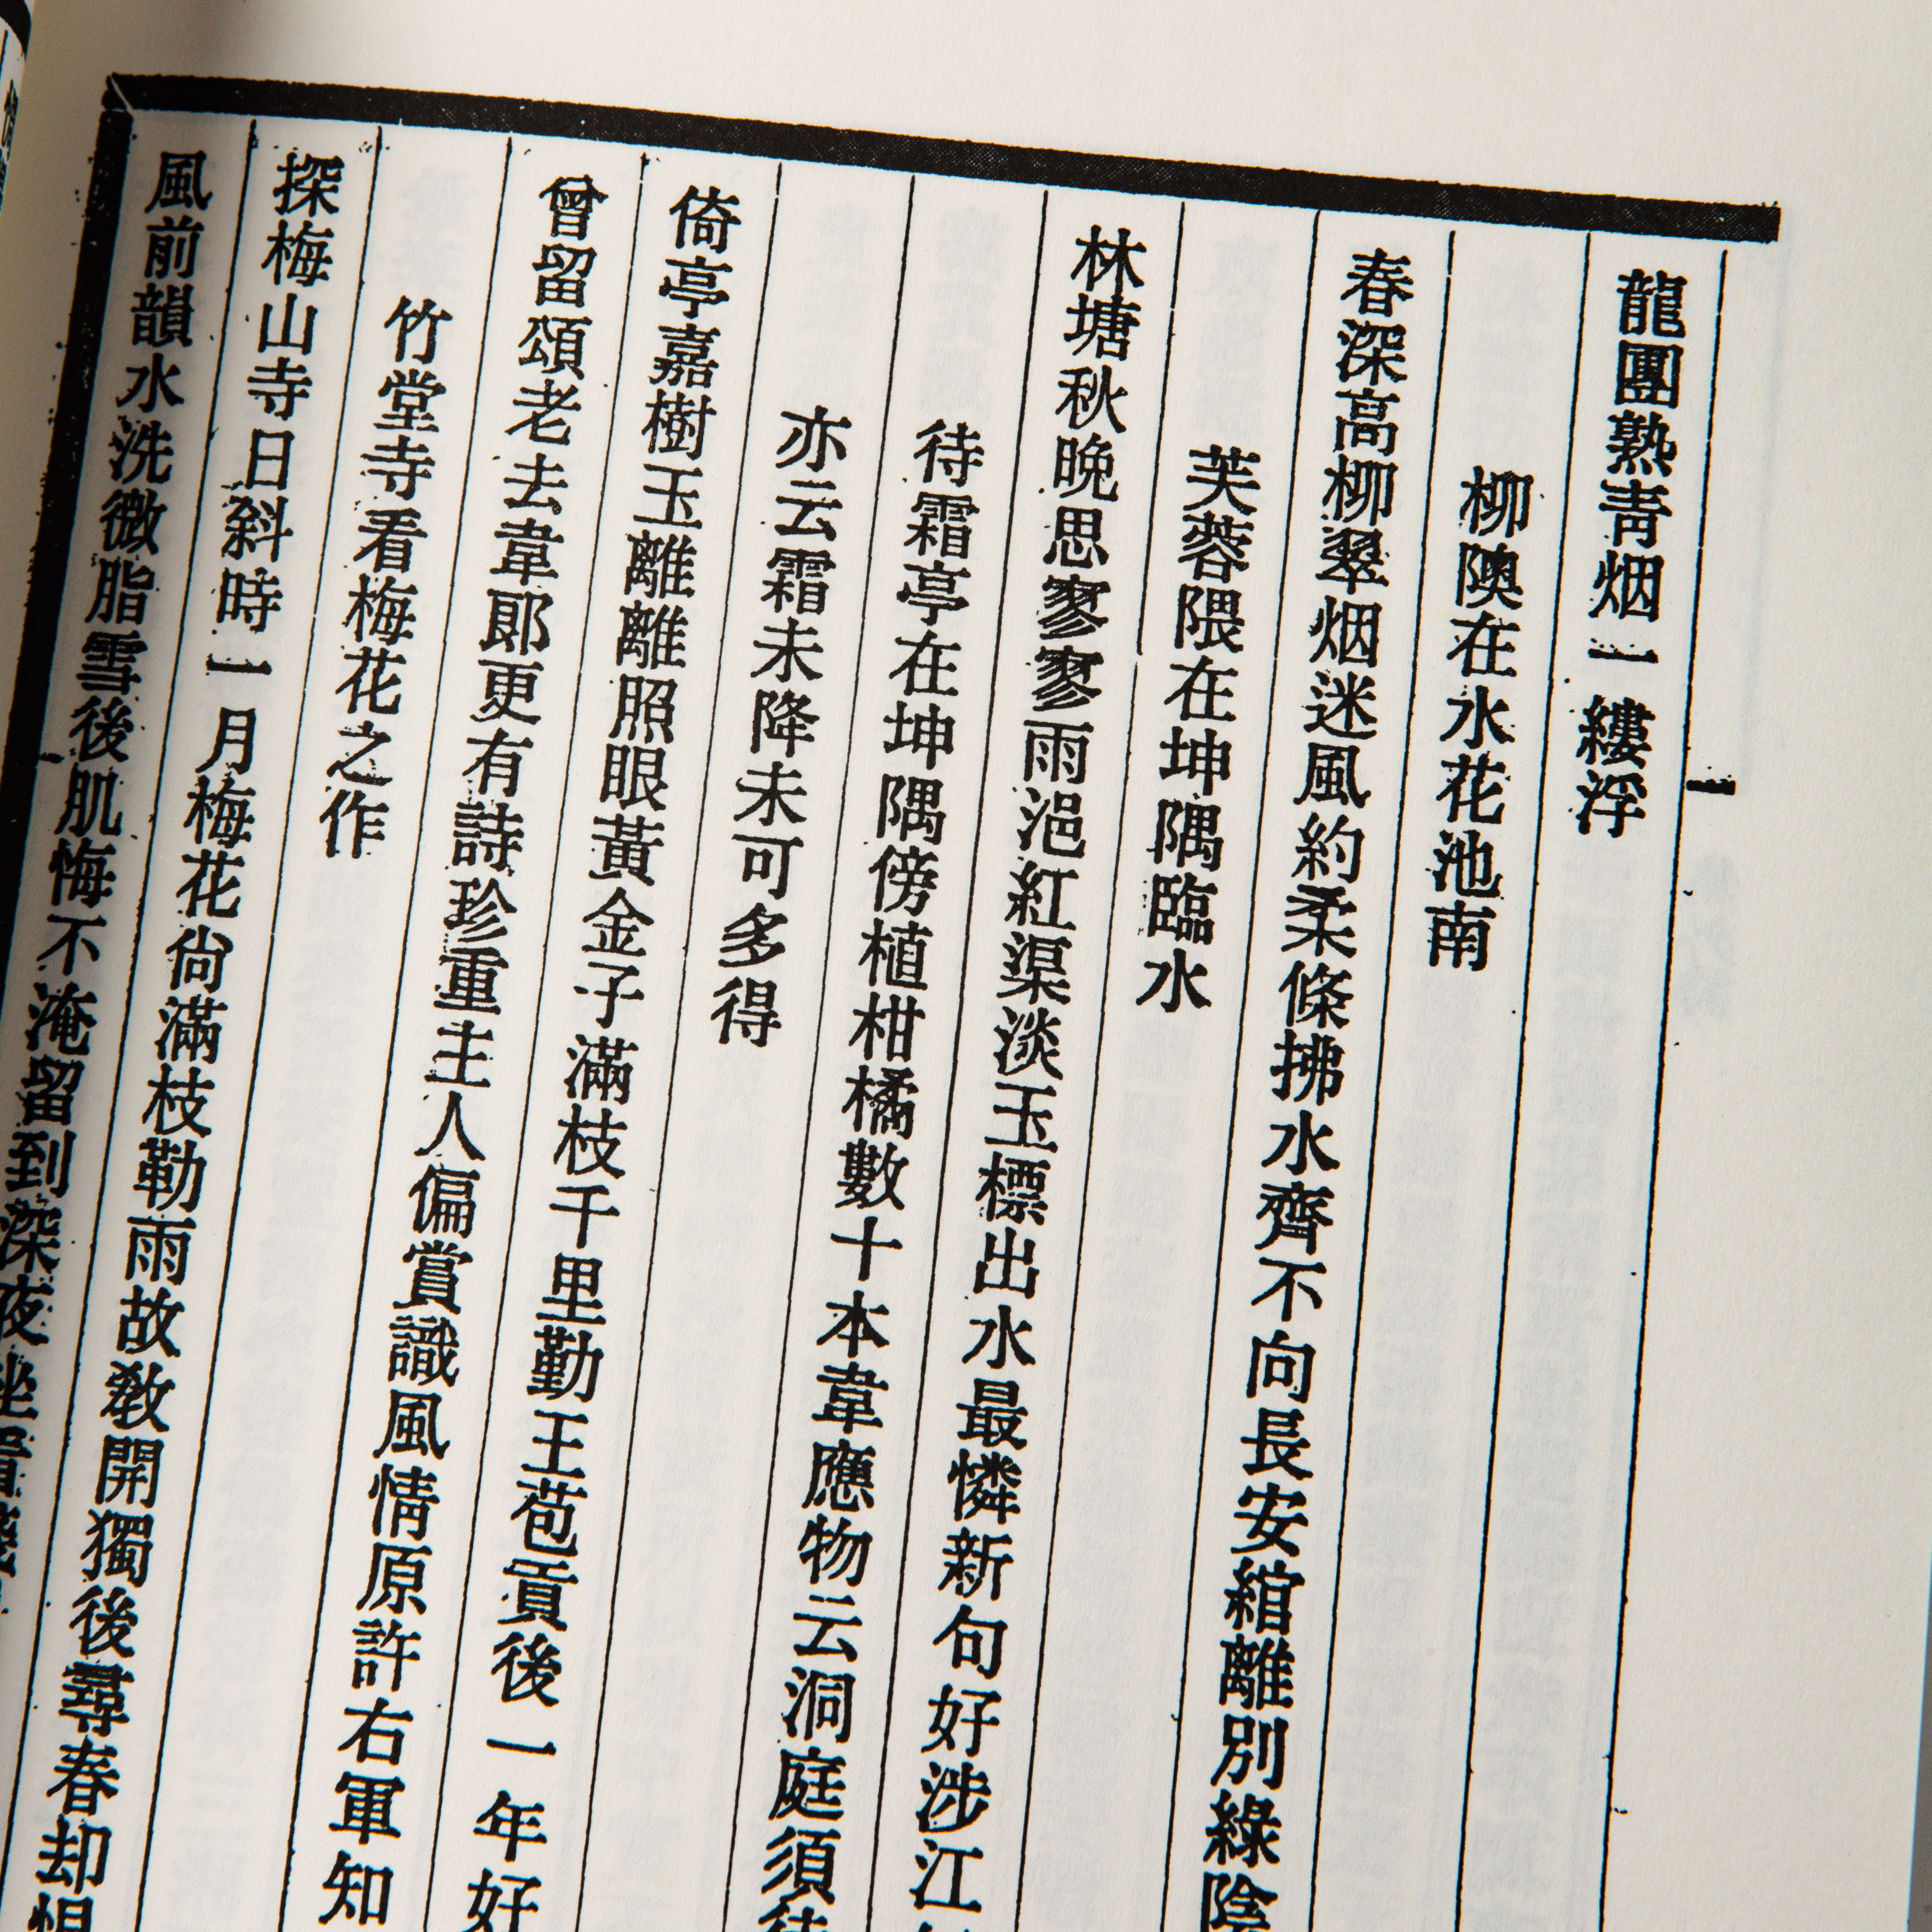 龍團熟靑烟一縷浮
柳隩在水花池南
春深高柳翠烟迷風約柔條拂水齊不向長安綰離別綠陰
芙蓉隈在坤隅臨水
林塘秋晚思寥寥雨浥紅渠淡玉標出水最憐新句好涉江
待霜亭在坤隅傍植柑橘數十本韋應物云洞庭須待
亦云霜未降未可多得
倚亭嘉樹玉離離照眼黃金子滿枝千里勤王苞貢後一年好
曾留頌老去韋郞更有詩珍重主人偏賞識風情原許右軍知
竹堂寺看梅花之作
探梅山寺日斜時一月梅花尙滿枝勒雨故敎開獨後尋春却恨
風前韻水洗微脂雪後肌悔不淹留到深夜坐看